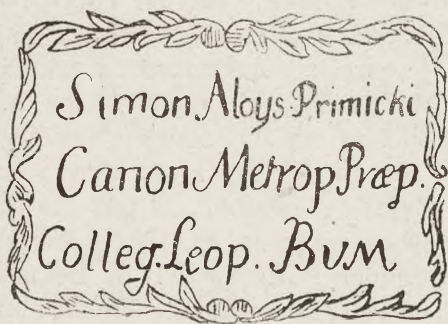 Simon. Aloys. Primicki
Canon Metrop Præp.
Colleg. Leop. BVM